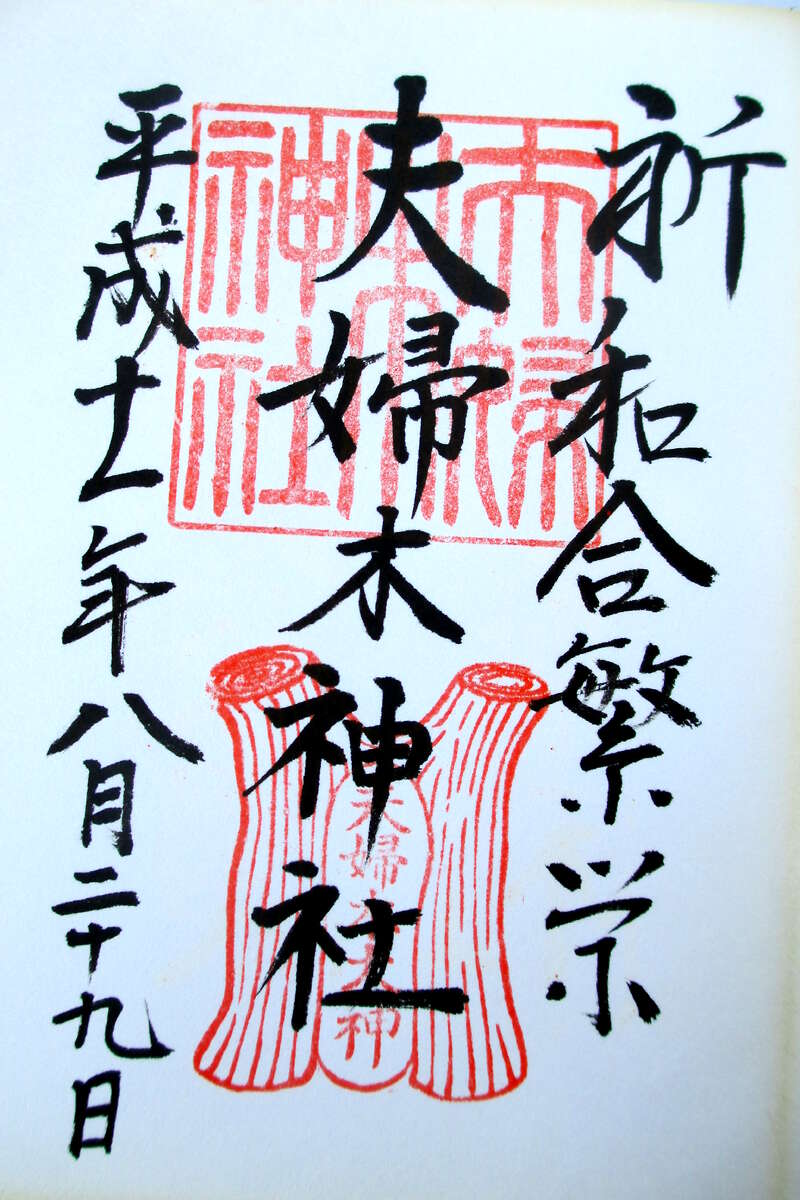 祈和合繁栄
夫婦木神社
平成十一年八月二十九日
夫婦木神社
夫婦木大神